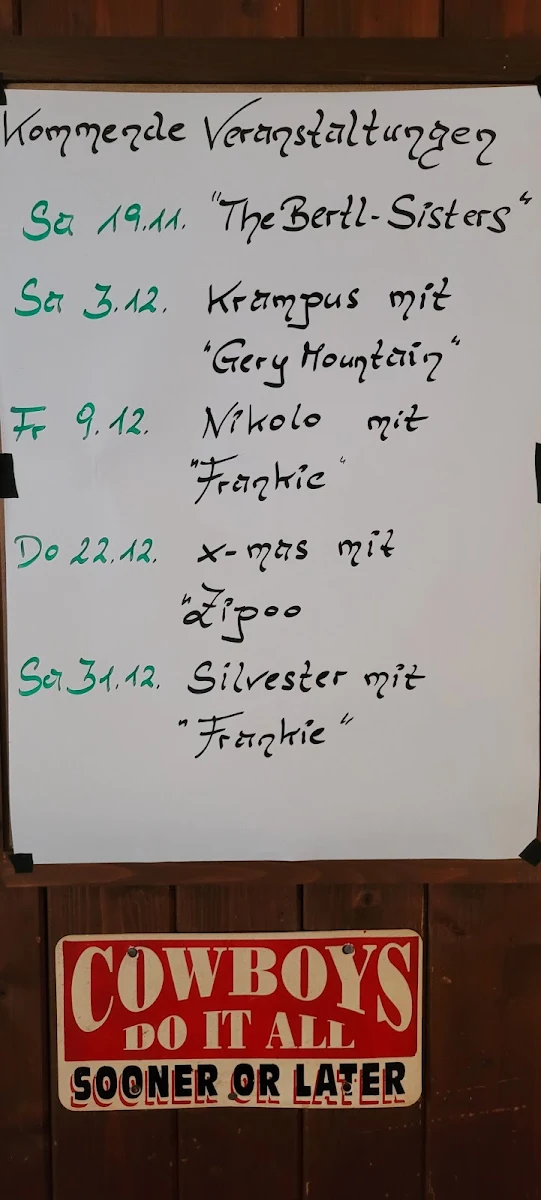 Kommende Veranstaltungen
Sa 19.11. "The Bertl-Sisters"
Sa 3.12. Krampus mit
"Gery Mountain"
Fr 9.12. Nikolo mit
"Frankie"
Do 22.12. x-mas mit
"Zipoo
Sa 31.12. Silvester mit
"Frankie"
COWBOYS
DO IT ALL
SOONER OR LATER